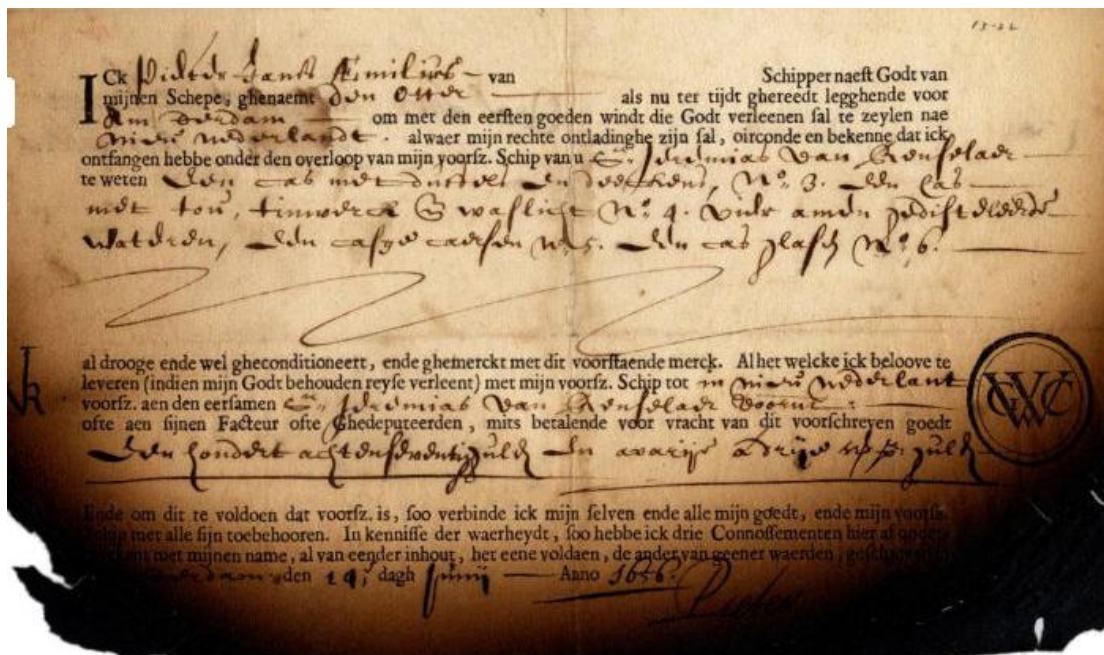 13-22
ICk Pieter Jansz Æmilius van Schipper naest Godt van
mijnen Schepe, ghenaemt Den Otter als nu ter tijdt ghereedt legghende voor
Amsterdam om met den eersten goeden windt die Godt verleenen sal te zeylen nae
nieu nederlandt. alwaer mijn rechte ontladinghe zijn sal, oirconde en bekenne dat ick
ontfangen hebbe onder den overloop van mijn voorsz. Schip van u Sr. Jeremias van Renselaer
te weten Een cas met duffels en deeckens, No. 3. Een cas
met tou, tinwerck & waslicht No. 4. vier amen gedisteleerde
wateren, Een casge caersen No. 5. Een cas glasen No. 6.
al drooge ende wel gheconditioneert, ende ghemerckt met dit voorstaende merck. Al het welcke ick beloove te
leveren (indien mijn Godt behouden reyse verleent) met mijn voorsz. Schip tot in nieu nederlant
voorsz. aen den eersamen Sr. Jeremias van Renselaer voornt
ofte aen sijnen Facteur ofte Ghedeputeerden, mits betalende voor vracht van dit voorschreven goedt
Een hondert achtenseventigh guld En avarije
Ende om dit te voldoen dat voorsz. is, soo verbinde ick mijn selven ende alle mijn goedt, ende mijn voorsz.
met alle sijn toebehooren. In kennisse der waerheydt, soo hebbe ick drie Connossementen hier af
met mijnen name, al van eender inhout, het eene voldaen, de ander van geener waerden,
den 14 dagh Junij Anno 1656.
Pieter